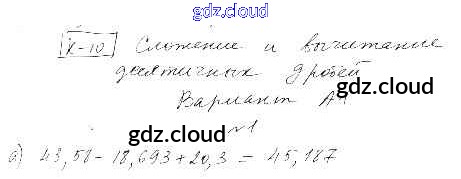 gdz.cloud
К-10 Сложение и вычитание
десятичных дробей
Вариант А1
gdz.cloud
gdz.cloud
№1
а) 43,58 - 18,693 + 20,3 = 45,187